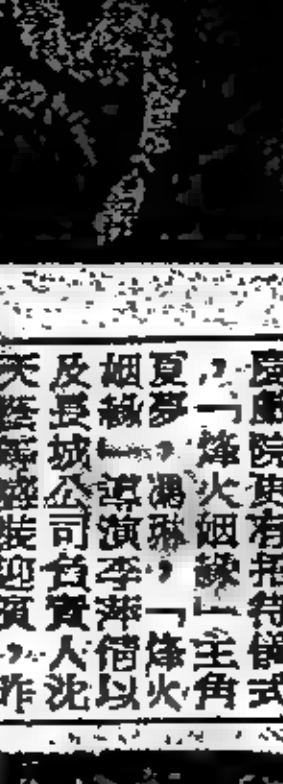 院更有招待儀式
，「烽火姻緣」主角
夏夢，馮琳，「烽火
姻緣」導演李萍倩以
及長城公司負責人沈
迎
，昨